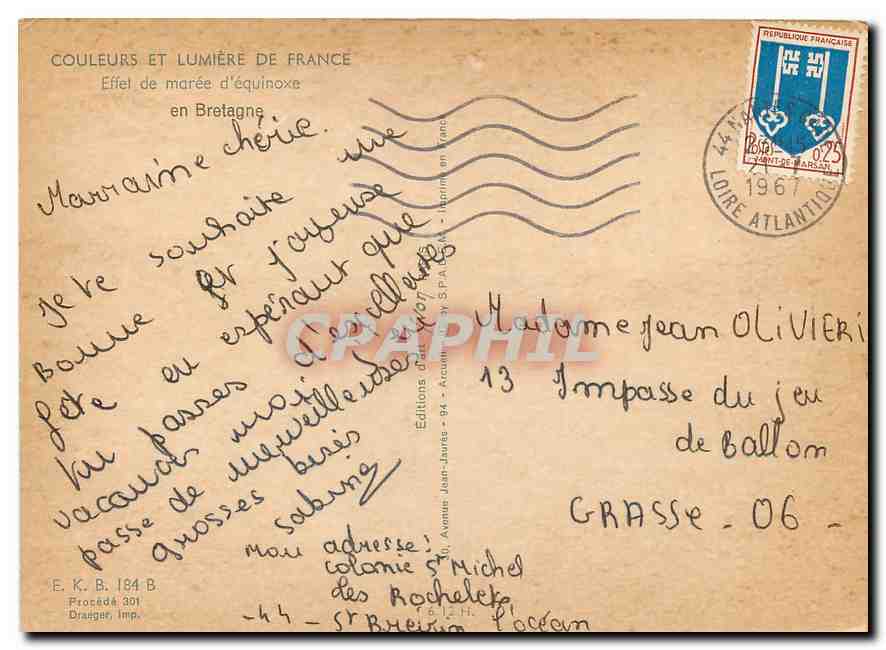 COULEURS ET LUMIÈRE DE FRANCE
Effet de marée d'équinoxe
en Bretagne
Marraine chérie.
Je te souhaite une
Bonne et joyeuse
fête en espérant que
tu passes d'exellentes
vacances moi j'en
passe de merveilleuses
grosses bisés
Sabine
Mon adresse :
colonie St Michel
Les Rochelets
-44- St Brévin l'océan
E. K. B. 184 B
Procédé 301
Draeger, Imp.
6.12 H.
Éditions d'art
Avenue Jean-Jaurès - 94 - Arcueil
by S.P.A.D.E.M. - Imprimé en France
CPAPHIL
REPUBLIQUE FRANÇAISE
0,25
MONT-DE-MARSAN
44 NA
1967
LOIRE ATLANTIQUE
Madame Jean OLIVIERI
13 Impasse du jeu
de Ballon
GRASSE - 06 -